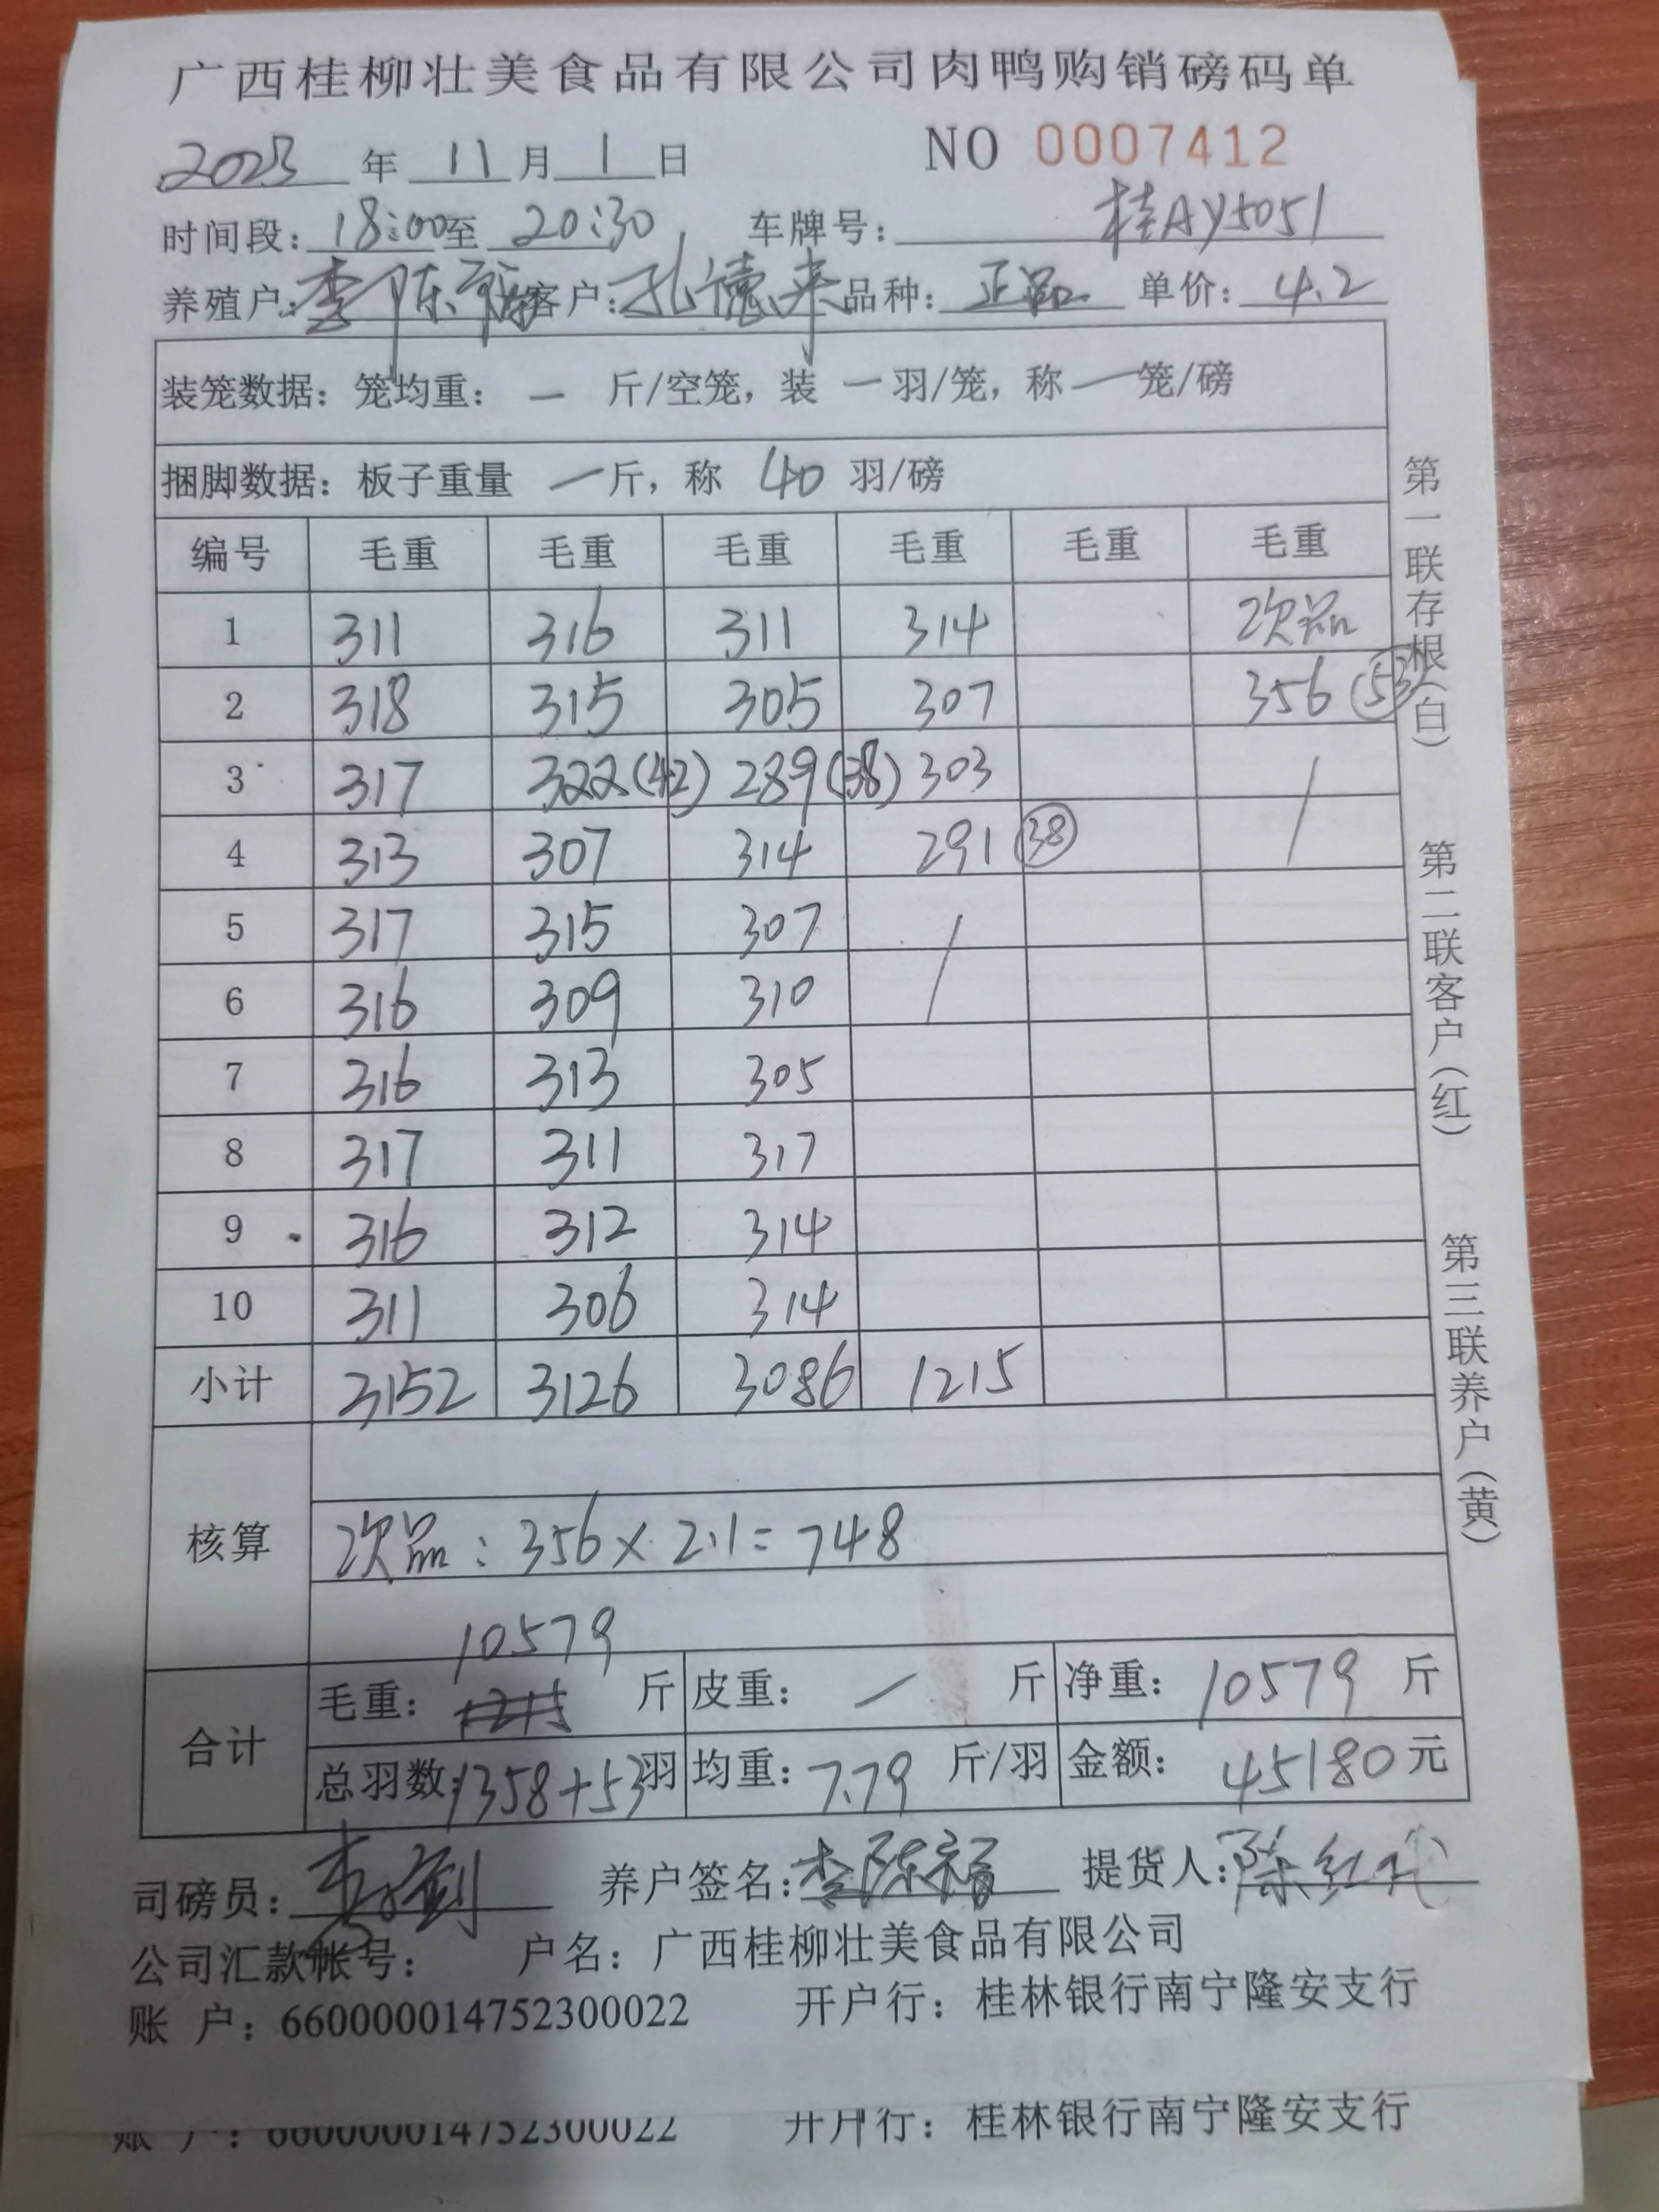 广西桂柳壮美食品有限公司肉鸭购销磅码单
2023 年 11 月 1 日 NO 0007412
时间段：18:00至 20:30 车牌号：桂AY5051
养殖户：李陈福 客户：孔德来 品种：正品 单价：4.2
装笼数据：笼均重：一 斤/空笼，装 一 羽/笼，称 一 笼/磅
捆脚数据：板子重量 一 斤，称 40 羽/磅
编号 毛重 毛重 毛重 毛重 毛重 毛重
1 311 316 311 314 次品
2 318 315 305 307 356 (53)
3 317 322(42) 289(38) 303 /
4 313 307 314 291 (38)
5 317 315 307 /
6 316 309 310
7 316 313 305
8 317 311 317
9 316 312 314
10 311 306 314
小计 3152 3126 3086 1215
核算
次品：356×2.1=748
10579
合计 毛重： 斤 皮重：一 斤 净重：10579 斤
总羽数：1358+53羽 均重：7.79 斤/羽 金额：45180元
司磅员：李 养户签名：李陈福 提货人：陈红
公司汇款帐号： 户名：广西桂柳壮美食品有限公司
账 户：660000014752300022 开户行：桂林银行南宁隆安支行
账 户：660000014752300022 开户行：桂林银行南宁隆安支行
第一联存根（白）
第二联客户（红）
第三联养户（黄）